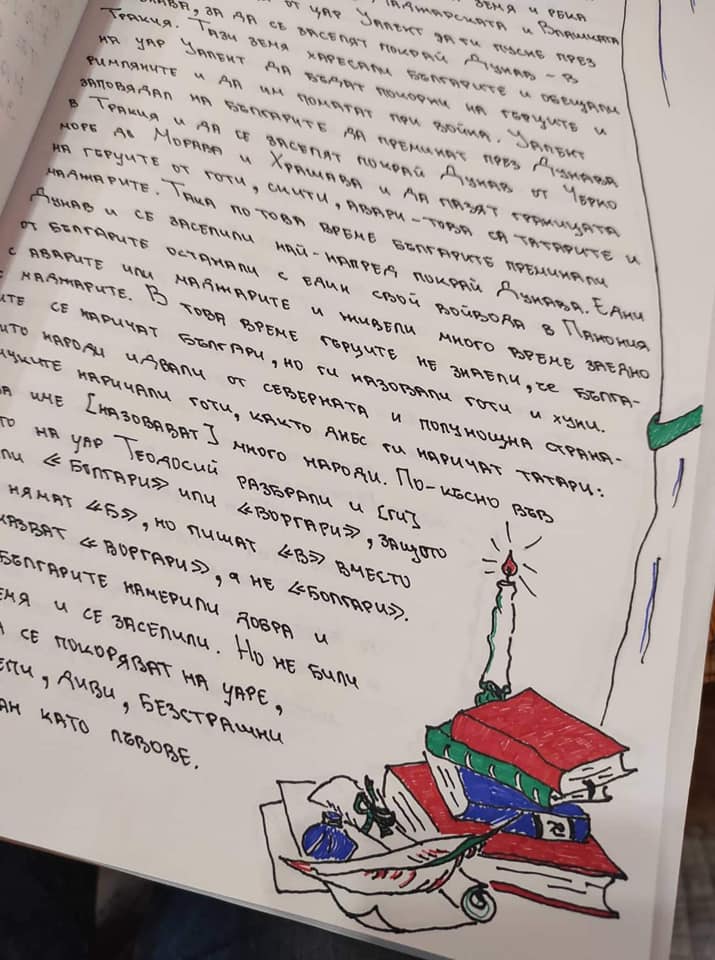 ЗЕМЯ И РЕКА
МАДЖАРСКАТА И ВЛАШКАТА
ОТ ЦАР УАЛЕНТ ДА ГИ ПУСНЕ ПРЕЗ
ЗА ДА СЕ ЗАСЕЛЯТ ПОКРАЙ ДУНАВ - В
ТРАКИЯ. ТАЗИ ЗЕМЯ ХАРЕСАЛИ БЪЛГАРИТЕ И ОБЕЩАЛИ
НА ЦАР УАЛЕНТ ДА БЪДАТ ПОКОРНИ НА ГЪРЦИТЕ И
РИМЛЯНИТЕ И ДА ИМ ПОМАГАТ ПРИ ВОЙНА. УАЛЕНТ
ЗАПОВЯДАЛ НА БЪЛГАРИТЕ ДА ПРЕМИНАТ ПРЕЗ ДУНАВА
В ТРАКИЯ И ДА СЕ ЗАСЕЛЯТ ПОКРАЙ ДУНАВ ОТ ЧЕРНО
МОРЕ ДО МОРАВА И ХРАШАВА И ДА ПАЗЯТ ГРАНИЦАТА
НА ГЪРЦИТЕ ОТ ГОТИ, СКИТИ, АВАРИ - ТОВА СА ТАТАРИТЕ И
МАДЖАРИТЕ. ТАКА ПО ТОВА ВРЕМЕ БЪЛГАРИТЕ ПРЕМИНАЛИ
ДУНАВ И СЕ ЗАСЕЛИЛИ НАЙ-НАПРЕД ПОКРАЙ ДУНАВА. ЕДНИ
ОТ БЪЛГАРИТЕ ОСТАНАЛИ С ЕДИН СВОЙ ВОЙВОДА В ПАНОНИЯ
С АВАРИТЕ ИЛИ МАДЖАРИТЕ И ЖИВЕЛИ МНОГО ВРЕМЕ ЗАЕДНО
С МАДЖАРИТЕ. В ТОВА ВРЕМЕ ГЪРЦИТЕ НЕ ЗНАЕЛИ, ЧЕ БЪЛГА-
ИТЕ СЕ НАРИЧАТ БЪЛГАРИ, НО ГИ НАЗОВАЛИ ГОТИ И ХУНИ.
ИТО НАРОДИ ИДВАЛИ ОТ СЕВЕРНАТА И ПОЛУНОЩНА СТРАНА-
НАРИЧАЛИ ГОТИ, КАКТО ДНЕС ГИ НАРИЧАТ ТАТАРИ:
ИМЕ [НАЗОВАВАТ] МНОГО НАРОДИ. ПО-КЪСНО ВЪВ
ТО НА ЦАР ТЕОДОСИЙ РАЗБРАЛИ И [ГИ]
ЛИ «БЪЛГАРИ» ИЛИ «ВОРГАРИ», ЗАЩОТО
НЯМАТ «Б», НО ПИШАТ «В» ВМЕСТО
КАЗВАТ «ВОРГАРИ», А НЕ «БОЛГАРИ».
БЪЛГАРИТЕ НАМЕРИЛИ ДОБРА И
ЕМЯ И СЕ ЗАСЕЛИЛИ. НО НЕ БИЛИ
СЕ ПОКОРЯВАТ НА ЦАРЕ,
ДИВИ, БЕЗСТРАШНИ
КАТО ЛЪВОВЕ.